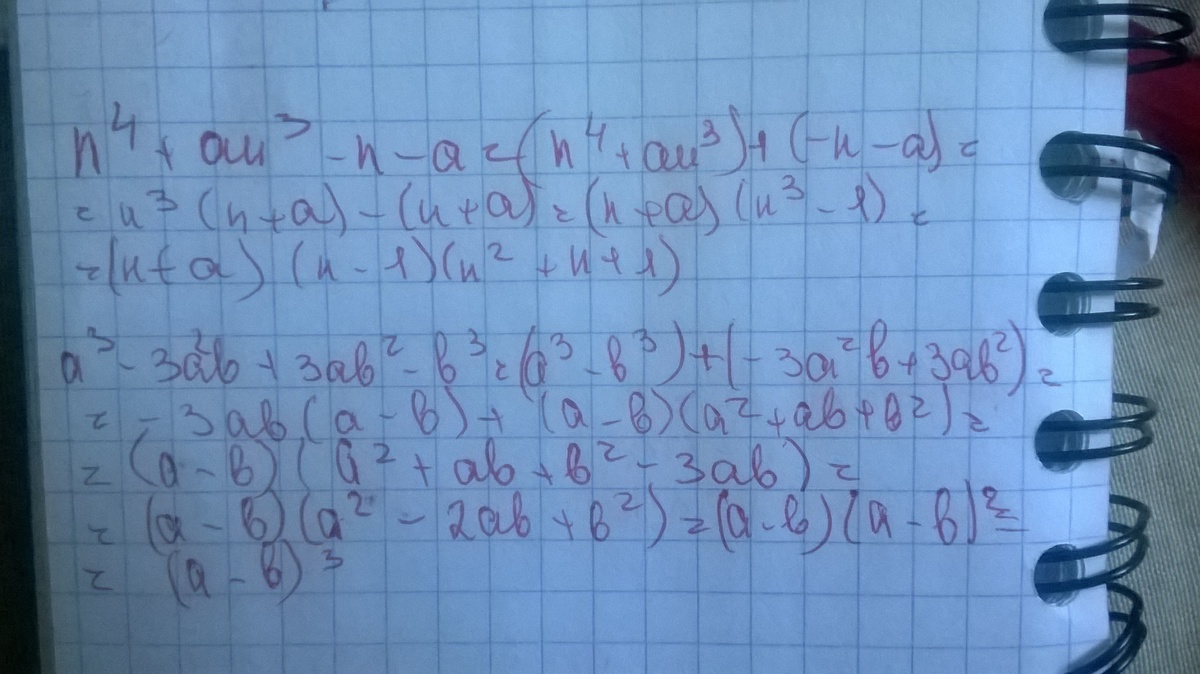 n⁴ + an³ - n - a = (n⁴ + an³) + (-n - a) =
= n³ (n + a) - (n + a) = (n + a) (n³ - 1) =
= (n + a) (n - 1)(n² + n + 1)
a³ - 3a²b + 3ab² - b³ = (a³ - b³) + (-3a²b + 3ab²) =
= -3ab(a - b) + (a - b)(a² + ab + b²) =
= (a - b)(a² + ab + b² - 3ab) =
= (a - b)(a² - 2ab + b²) = (a - b)(a - b)² =
= (a - b)³